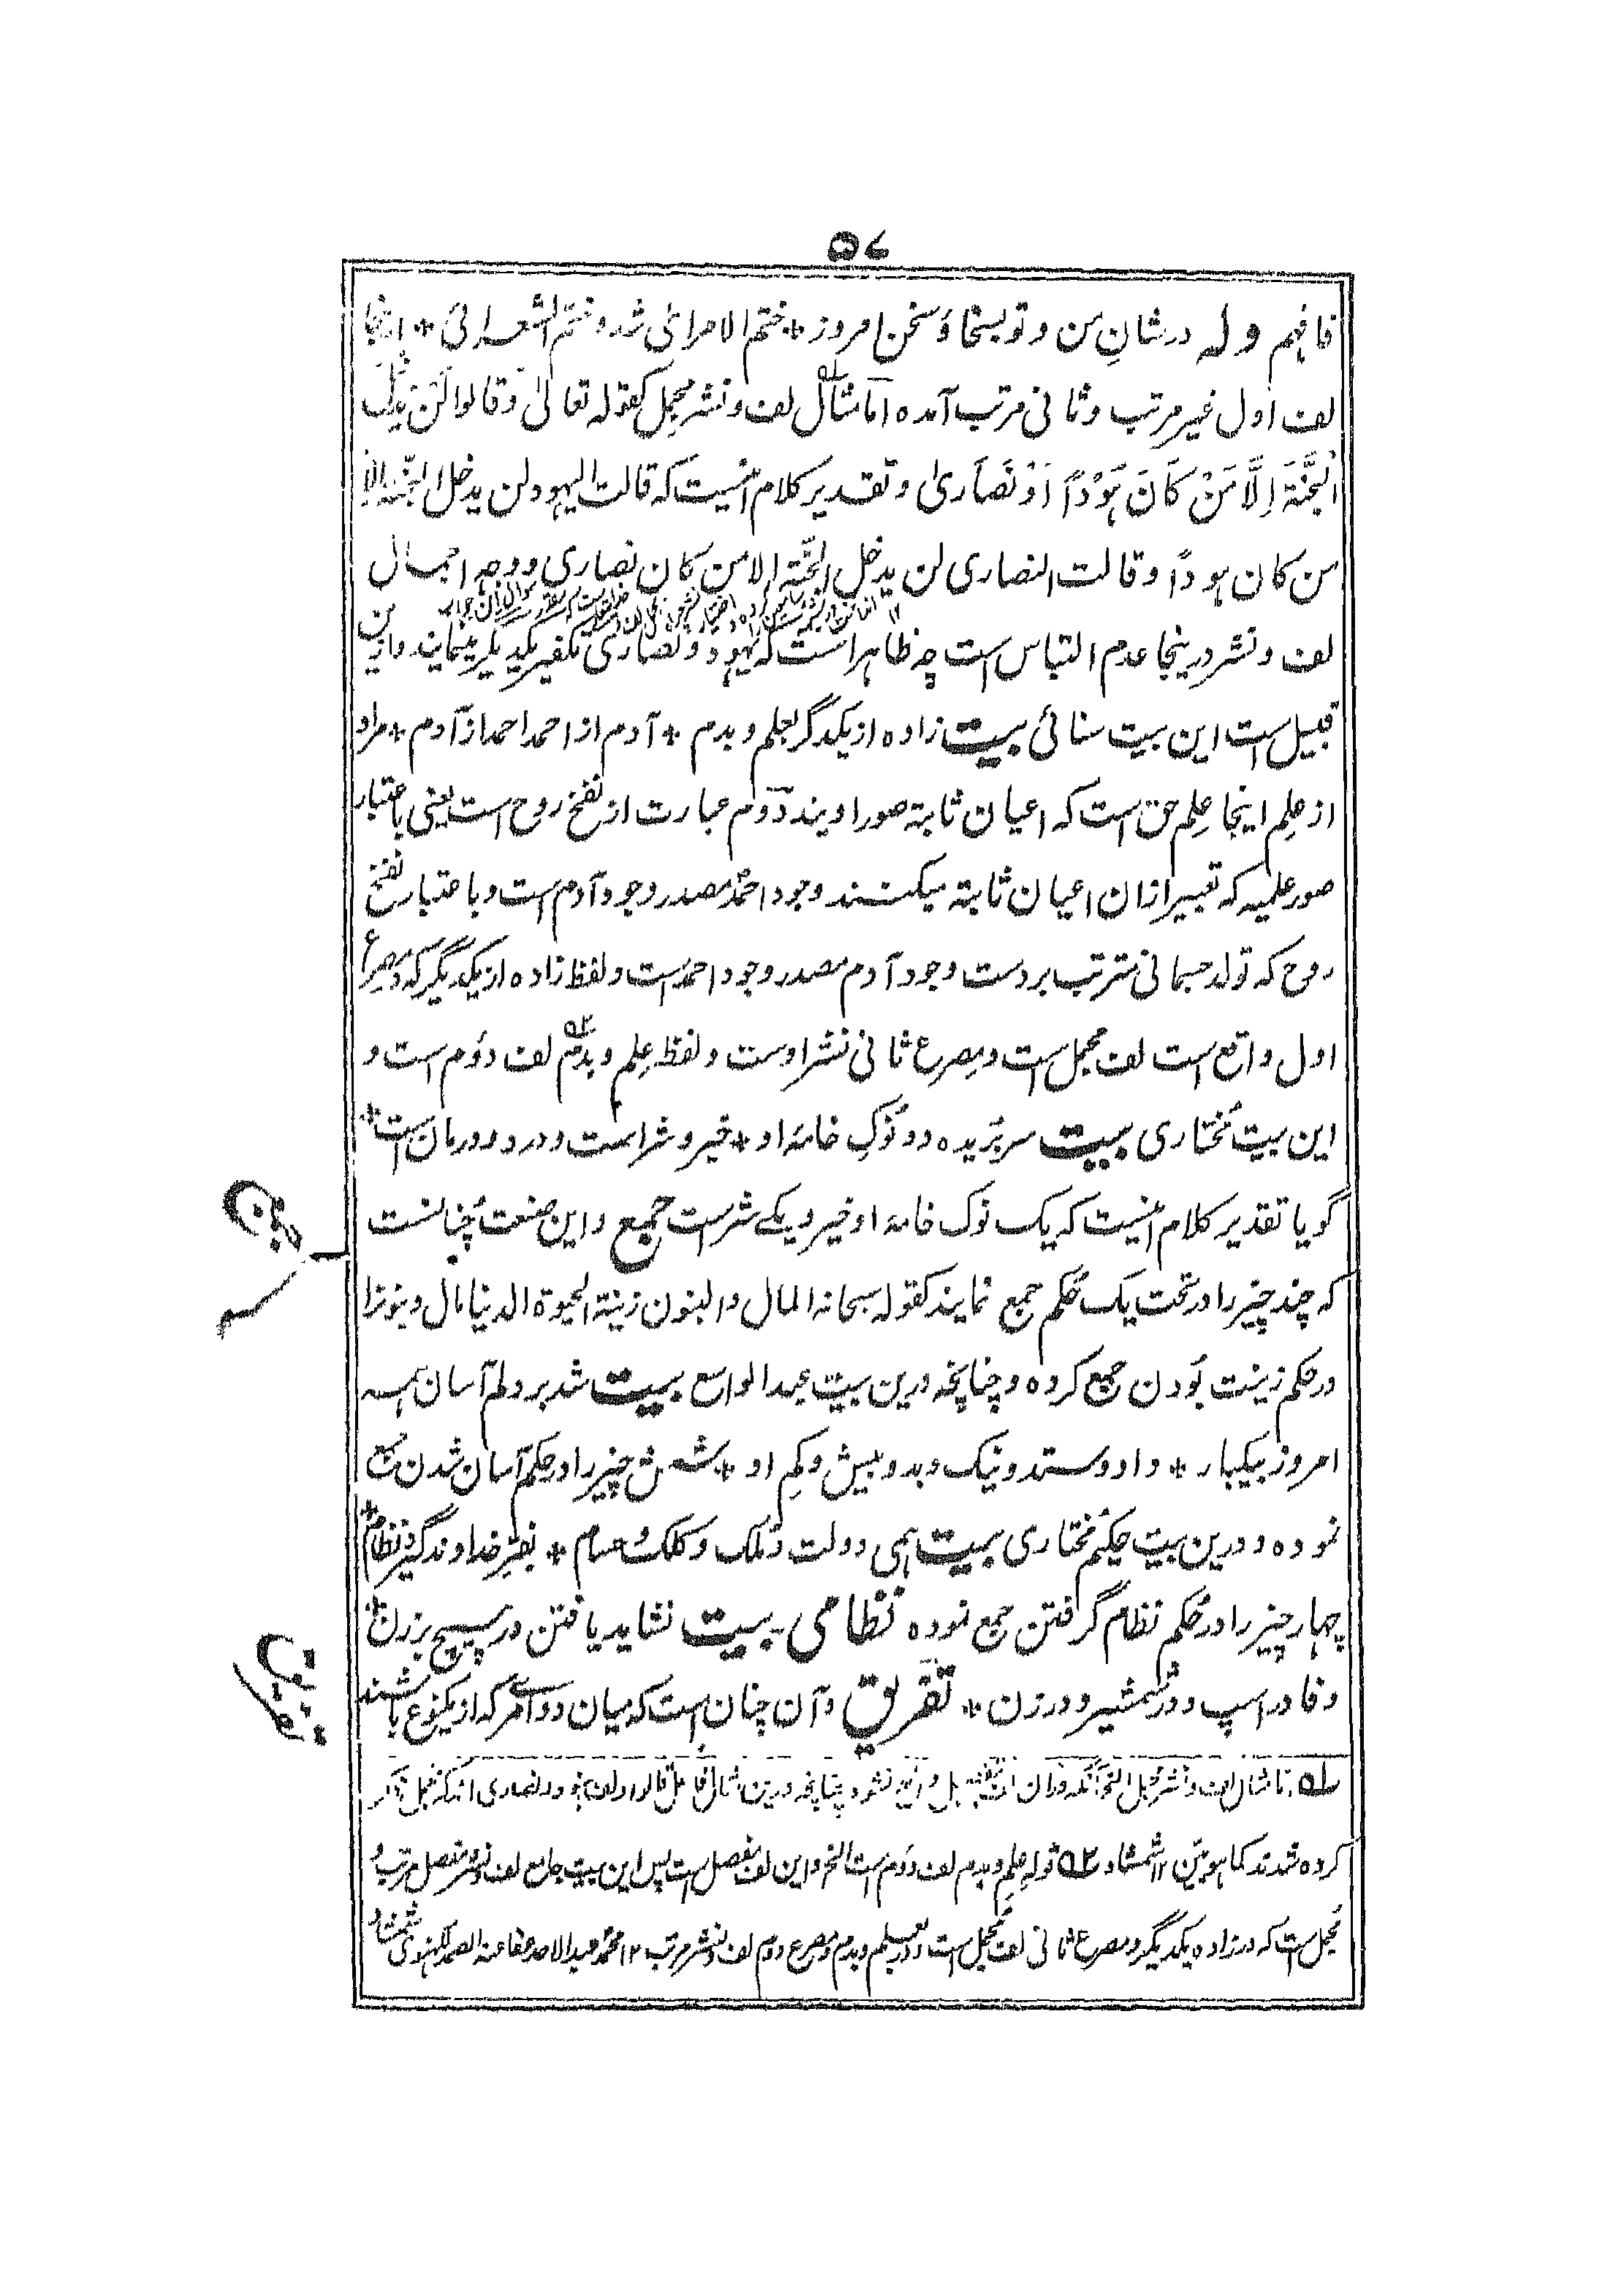 ۵۷
فافہم وله درشانِ من و تو بسخا و سخن امروز * ختم الامرائی شد و ختم الشعرائی * اینجا
لف اول غیر مرتب و ثانی مرتب آمده اما مثال لف و نشر مجمل کقوله تعالیٰ وقالوا لن یدخل
الْجَنَّةَ اِلَّا مَنْ كَانَ هُوْدًا اَوْ نَصَارىٰ و تقدیر کلام اینست که قالت الیہود لن یدخل الجنّة الا
من کان ہودًا و قالت النصاری لن یدخل الجنّة الا من کان نصاری و وجہ اجمال
لف و نشر درینجا عدم التباس است چه ظاہر است که یہود و نصاری تکفیر یکدیگر مینمایند و ازین
قبیل است این بیت سنائی بیت زاده از یکدگر بعلم و بدم * آدم از احمد احمد از آدم * مراد
از علم اینجا علم حق است که اعیان ثابته صور اویند و دم عبارت از نفخ روح است یعنی باعتبار
صور علمیه که تعبیر ازان اعیان ثابته میکنند وجود احمد مصدر وجود آدم است و باعتبار نفخ
روح که تولد جسمانی مترتب بروست وجود آدم مصدر وجود احمد است و لفظ زاده از یکدیگر که در مصرع
اول واقع است لف مجمل است و مصرع ثانی نشر اوست و لفظ علم و بدم لف دوم است و
این بیت مختاری بیت سر بُریده دو نوکِ خامهٔ او * خیر و شر است و درد و درمان است *
گویا تقدیر کلام اینست که یک نوک خامهٔ او خیر و یکے شر است جمیع و این صنعت چنانست
که چند چیز را در تحت یک حکم جمع نمایند کقوله سبحانه المال والبنون زینة الحیوة الدنیا مال و بنون را
در حکم زینت بودن جمع کرده و چنانچه درین بیت عبدالواسع بیت شد بر دلم آسان ہمه
امروز بیکبار * داد و ستد و نیک و بد و بیش و کمِ او * شش چیز را در حکم آسان شدن جمع
نموده و درین بیت حکیم مختاری بیت ہمی دولت و ملک و کلک و حسام * بفرِّ خداوند گیرد نظام *
چہار چیز را در حکم نظام گرفتن جمع نموده نظامی بیت نشاید یافتن در ہیچ برزن *
وفا در اسپ و در شمشیر و در زن * تفریق و آن چنان است که میان دو امر که از یکنوع باشند
جمع
تفریق
کرده شدند کما ہو بیّن ۱۲ شمشاد ۵۲ قوله علم و بدم لف دوم است الخ و این لف مفصل است پس این بیت جامع لف و نشر مفصل مرتب و
مجمل است که در زاده یکدیگر و مصرع ثانی لف مجمل است و در بعلم و بدم و مصرع دوم لف و نشر مرتب ۱۲ محمد عبدالاحد عفا عنه الصمد لکہنوی شمشاد